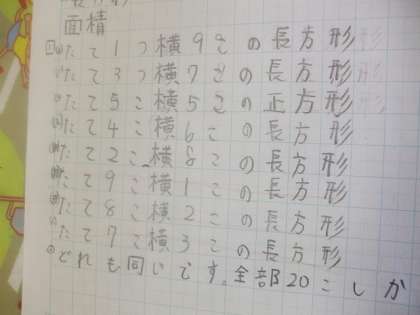 面積
たて1つ横9この長方形
たて3つ横7この長方形
たて5こ横5この正方形
たて4こ横6この長方形
たて2こ横8この長方形
たて9こ横1この長方形
たて8こ横2この長方形
たて7こ横3この長方形
どれも同じです。全部20こしか